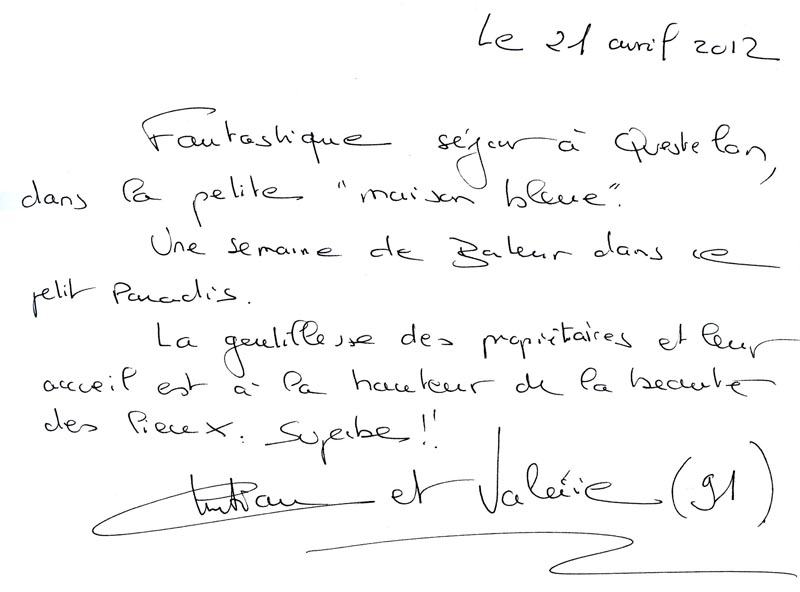 Le 21 avril 2012
Fantastique séjour à Questelan,
dans la petite "maison bleue".
Une semaine de dans ce
petit Paradis.
La gentillesse des propriétaires et leur
accueil est à la hauteur de la beauté
des lieux. Superbes !!
et Valérie (91)